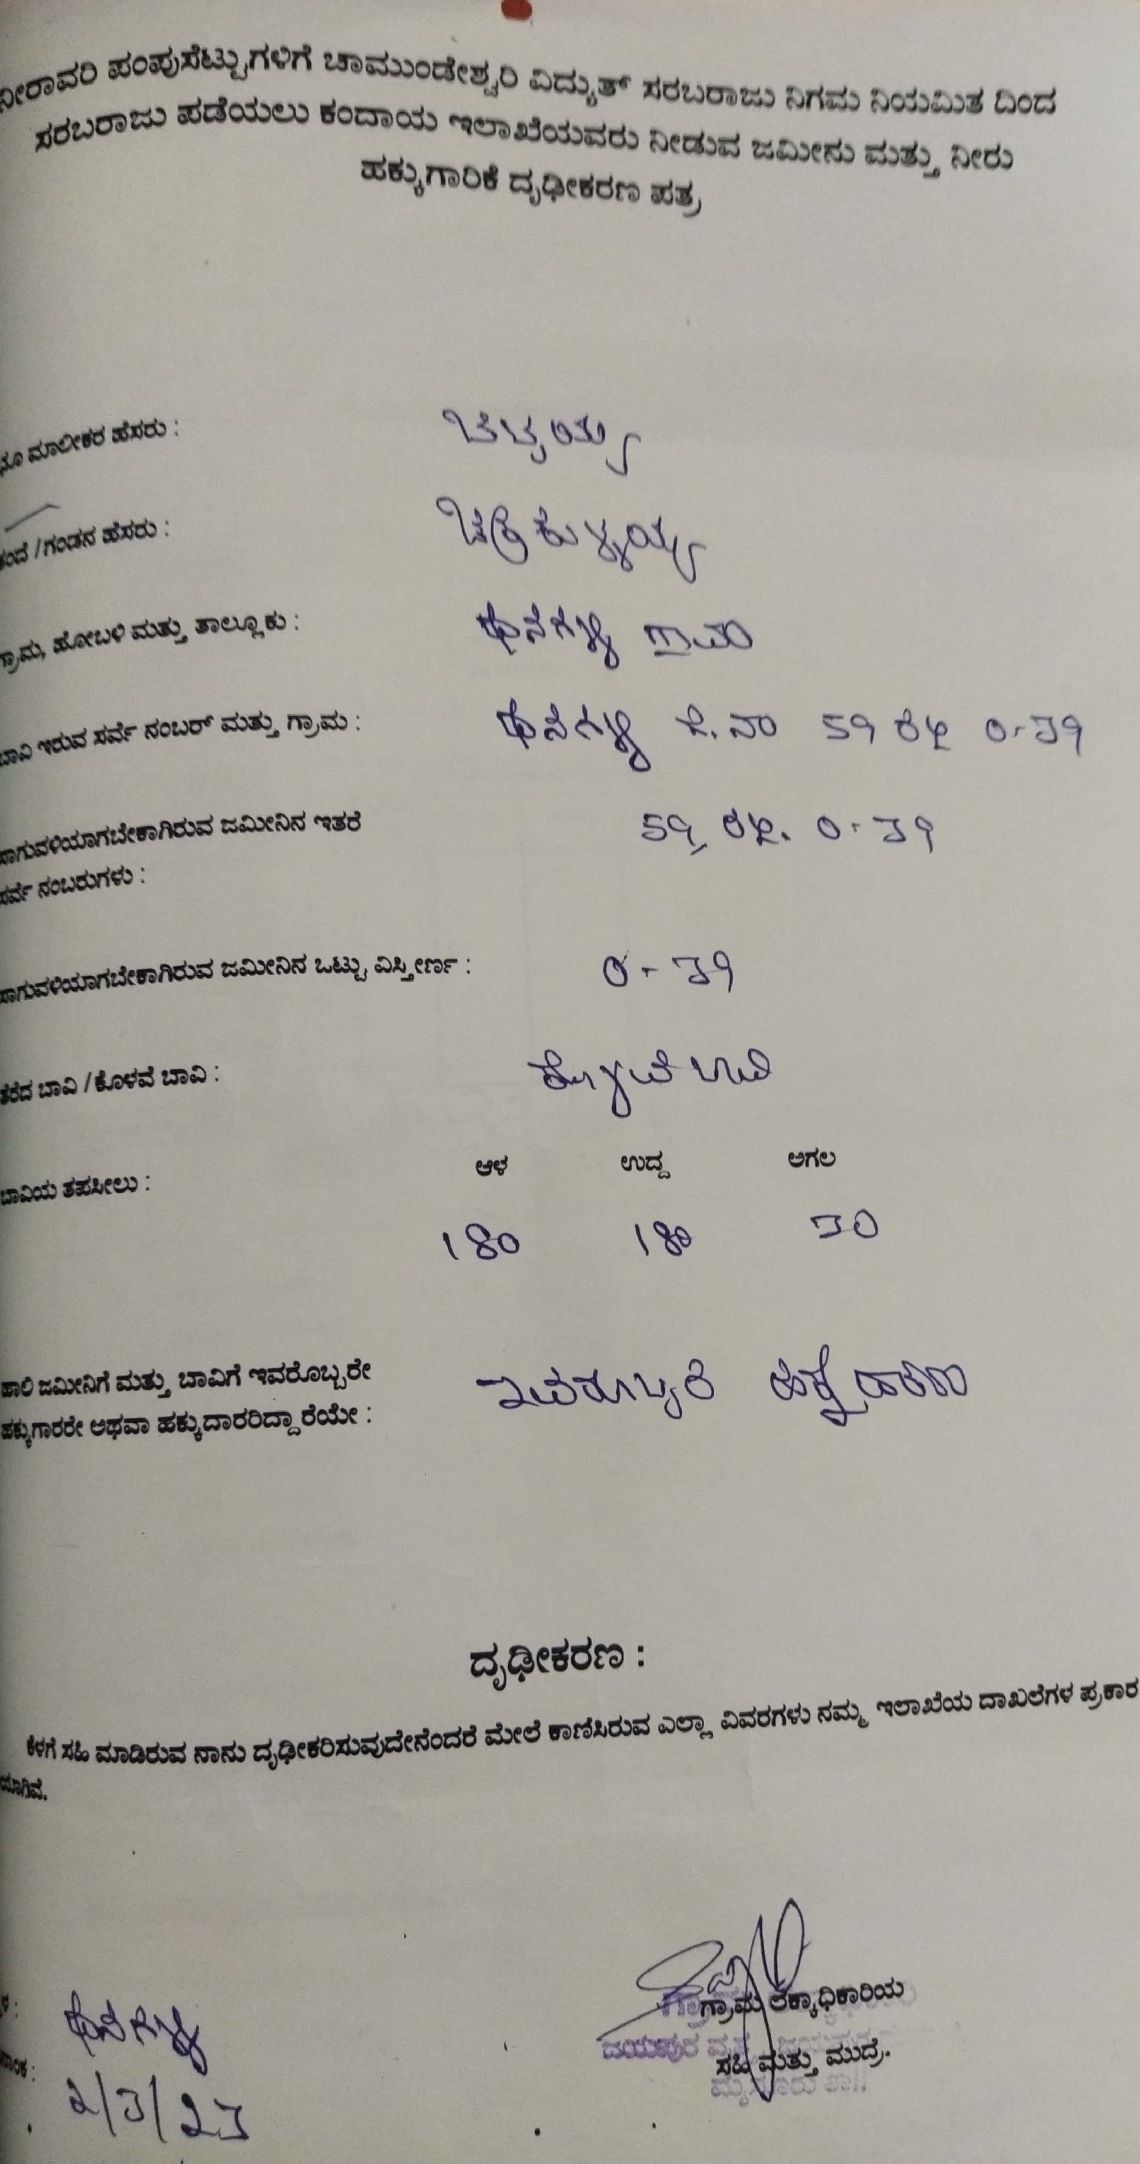 ನೀರಾವರಿ ಪಂಪುಸೆಟ್ಟುಗಳಿಗೆ ಚಾಮುಂಡೇಶ್ವರಿ ವಿದ್ಯುತ್ ಸರಬರಾಜು ನಿಗಮ ನಿಯಮಿತ ದಿಂದ
ಸರಬರಾಜು ಪಡೆಯಲು ಕಂದಾಯ ಇಲಾಖೆಯವರು ನೀಡುವ ಜಮೀನು ಮತ್ತು ನೀರು
ಹಕ್ಕುಗಾರಿಕೆ ದೃಢೀಕರಣ ಪತ್ರ
ಭೂ ಮಾಲೀಕರ ಹೆಸರು :
ತಂದೆ / ಗಂಡನ ಹೆಸರು :
ಗ್ರಾಮ, ಹೋಬಳಿ ಮತ್ತು ತಾಲ್ಲೂಕು : ಧನಗಳ್ಳಿ ಗ್ರಾಮ
ಬಾವಿ ಇರುವ ಸರ್ವೆ ನಂಬರ್ ಮತ್ತು ಗ್ರಾಮ : ಧನಗಳ್ಳಿ ಸ.ನಂ 59 0-39
ಸಾಗುವಳಿಯಾಗಬೇಕಾಗಿರುವ ಜಮೀನಿನ ಇತರೆ 59 0-39
ಸರ್ವೆ ನಂಬರುಗಳು :
ಸಾಗುವಳಿಯಾಗಬೇಕಾಗಿರುವ ಜಮೀನಿನ ಒಟ್ಟು ವಿಸ್ತೀರ್ಣ : 0-39
ತೆರೆದ ಬಾವಿ / ಕೊಳವೆ ಬಾವಿ : ಕೊಳವೆ ಬಾವಿ
ಬಾವಿಯ ತಪಸೀಲು : ಆಳ ಉದ್ದ ಅಗಲ
180 180 30
ಹಾಲಿ ಜಮೀನಿಗೆ ಮತ್ತು ಬಾವಿಗೆ ಇವರೊಬ್ಬರೇ ಇವರೊಬ್ಬರೆ
ಹಕ್ಕುಗಾರರೇ ಅಥವಾ ಹಕ್ಕುದಾರರಿದ್ದಾರೆಯೇ :
ದೃಢೀಕರಣ :
ಕೆಳಗೆ ಸಹಿ ಮಾಡಿರುವ ನಾನು ದೃಢೀಕರಿಸುವುದೇನೆಂದರೆ ಮೇಲೆ ಕಾಣಿಸಿರುವ ಎಲ್ಲಾ ವಿವರಗಳು ನಮ್ಮ ಇಲಾಖೆಯ ದಾಖಲೆಗಳ ಪ್ರಕಾರ
ಗ್ರಾಮ ಲೆಕ್ಕಾಧಿಕಾರಿಯ
ಧನಗಳ್ಳಿ
ಸಹಿ ಮತ್ತು ಮುದ್ರೆ.
2/3/23